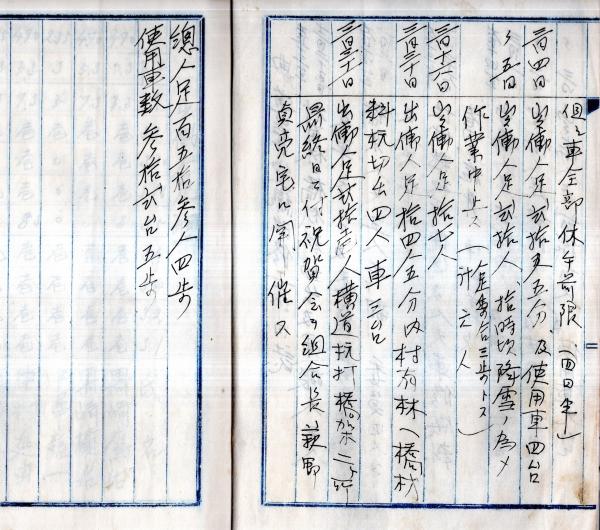 但シ車全部休午前限「一四日半」
三月四日 出働人足弐拾五五分、及使用車四台
〃五日 出働人足弐拾人、拾時頃降雪ノ為メ
作業中止ス(
三歩トス
計 六人)
三月十六日 出働人足拾七人
三月三十日 出働人足拾四人五分内村有林ヘ橋材
料杭切出四人 車三台
三月三十一日 出働人足弐拾壱人横道杭打橋架二ヶ所
最終日ニ付祝賀会ヲ組合長
貞亮宅ニ開催ス
總人足百五拾参人四歩
使用車数 参拾弐台五歩